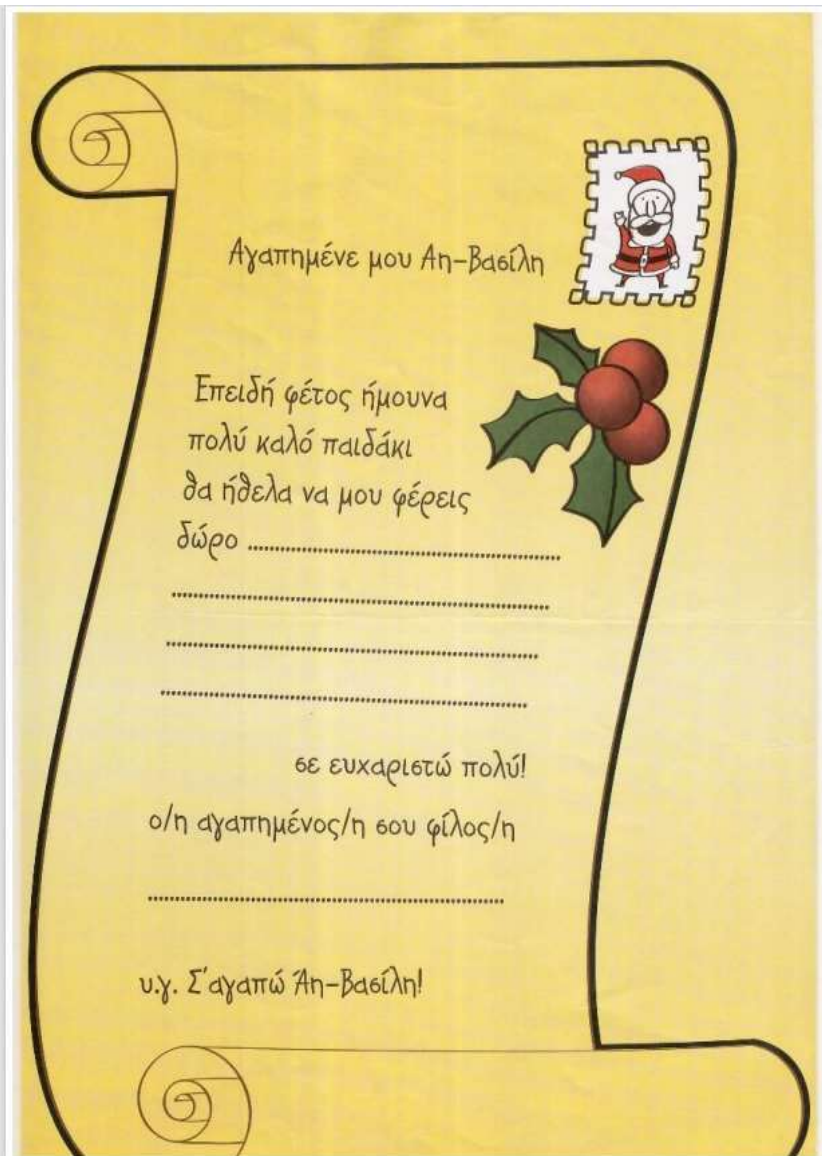 Αγαπημένε μου Αη-Βασίλη
Επειδή φέτος ήμουνα
πολύ καλό παιδάκι
θα ήθελα να μου φέρεις
δώρο ................................................................
................................................................
................................................................
................................................................
σε ευχαριστώ πολύ!
ο/η αγαπημένος/η σου φίλος/η
................................................................
υ.γ. Σ'αγαπώ Άη-Βασίλη!